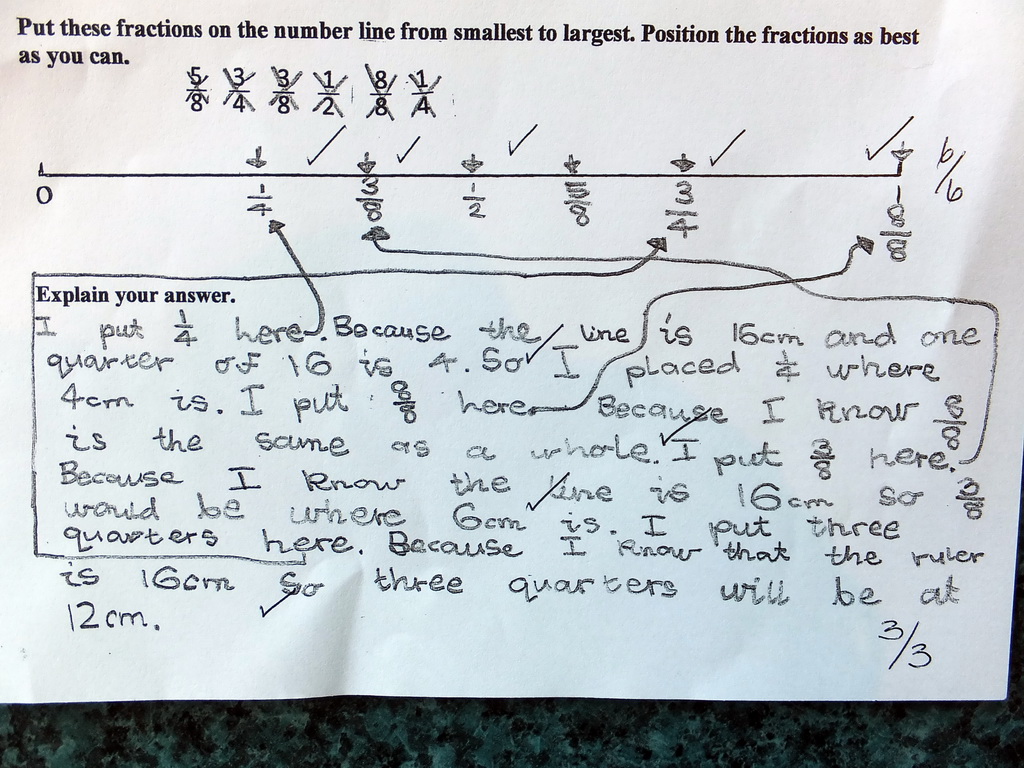 Put these fractions on the number line from smallest to largest. Position the fractions as best
as you can.
5/8 3/4 3/8 1/2 8/8 1/4
0 1/4 3/8 1/2 5/8 3/4 8/8
6/6
Explain your answer.
I put 1/4 here. Because the line is 16cm and one
quarter of 16 is 4. So I placed 1/4 where
4cm is. I put 8/8 here Because I know 8/8
is the same as a whole. I put 3/8 here.
Because I know the line is 16cm so 3/8
would be where 6cm is. I put three
quarters here. Because I know that the ruler
is 16cm So three quarters will be at
12cm.
3/3